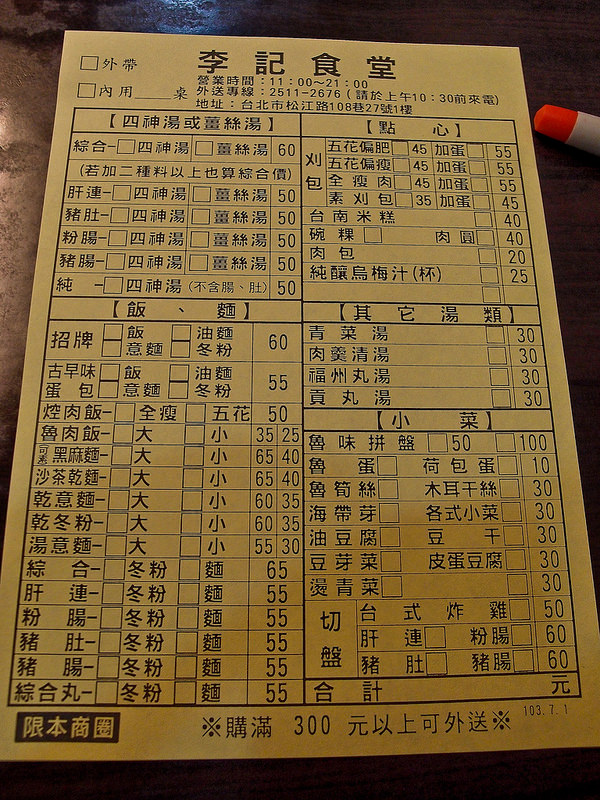 □外帶
□內用____桌
李記食堂
營業時間：11：00～21：00
外送專線：2511-2676（請於上午10：30前來電）
地址：台北市松江路108巷27號1樓
【四神湯或薑絲湯】
綜合-□四神湯□薑絲湯 60
(若加二種料以上也算綜合價)
肝連-□四神湯□薑絲湯 50
豬肚-□四神湯□薑絲湯 50
粉腸-□四神湯□薑絲湯 50
豬腸-□四神湯□薑絲湯 50
純 -□四神湯(不含腸、肚) 50
【飯、麵】
招牌 □飯 □油麵
□意麵 □冬粉 60
古早味 □飯 □油麵
蛋包 □意麵 □冬粉 55
焢肉飯-□全瘦□五花 50
魯肉飯-□大 □小 35 25
可素 黑麻麵-□大 □小 65 40
沙茶乾麵-□大 □小 65 40
乾意麵-□大 □小 60 35
乾冬粉-□大 □小 60 35
湯意麵-□大 □小 55 30
綜合-□冬粉□麵 65
肝連-□冬粉□麵 55
粉腸-□冬粉□麵 55
豬肚-□冬粉□麵 55
豬腸-□冬粉□麵 55
綜合丸-□冬粉□麵 55
【點心】
刈包
五花偏肥□45加蛋□55
五花偏瘦□45加蛋□55
全瘦肉□45加蛋□55
素刈包□35加蛋□45
台南米糕□40
碗粿□ 肉圓□40
肉包□20
純釀烏梅汁(杯)□25
【其它湯類】
青菜湯□30
肉羹清湯□30
福州丸湯□30
貢丸湯□30
【小菜】
魯味拼盤□50□100
魯蛋□ 荷包蛋□10
魯筍絲□ 木耳干絲□30
海帶芽□ 各式小菜□30
油豆腐□ 豆干□30
豆芽菜□ 皮蛋豆腐□30
燙青菜□30
切盤
台式炸雞□50
肝連□ 粉腸□60
豬肚□ 豬腸□60
合計 元
限本商圈
※購滿 300 元以上可外送※
103.7.1